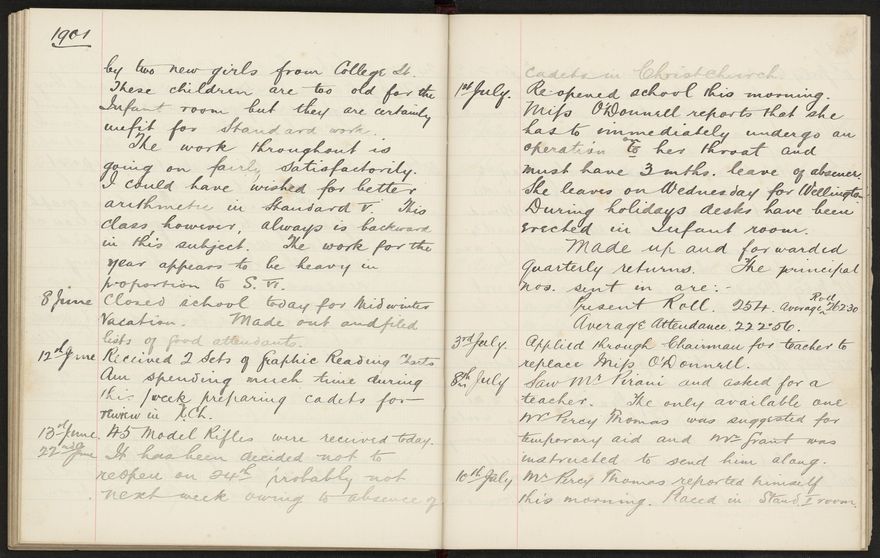 1901
by two new girls from College St.
These children are too old for the
Infant room but they are certainly
unfit for Standard work.
The work throughout is
going on fairly satisfactorily.
I could have wished for better
arithmetic in Standard V. This
class, however, always is backward
in this subject. The work for the
year appears to be heavy in
proportion to S. VI.
8 June Closed school today for Midwinter
Vacation. Made out and filed
lists of good attendants.
12th June Received 2 Sets of Graphic Reading Charts
Am spending much time during
this week preparing cadets for
review in Ch.Ch.
13th June 45 Model Rifles were received today.
22nd June It has been decided not to
reopen on 24th probably not
next week owing to absence of
cadets in Christchurch.
1st July. Re-opened school this morning.
Miss O'Donnell reports that she
has to immediately undergo an
operation to her throat and
must have 3 mths. leave of absence.
She leaves on Wednesday for Wellington.
During holidays desks have been
erected in Infant room.
Made up and forwarded
Quarterly returns. The principal
nos. sent in are:-
Present Roll. 254. Average Roll 230
Average Attendance. 222.56.
3rd July. Applied through Chairman for teacher to
replace Miss O'Donnell.
8th July Saw Mr Pirani and asked for a
teacher. The only available one
Mr Percy Thomas was suggested for
temporary aid and Mr Grant was
instructed to send him along.
10th July Mr Percy Thomas reported himself
this morning. Placed in Stand. I room.